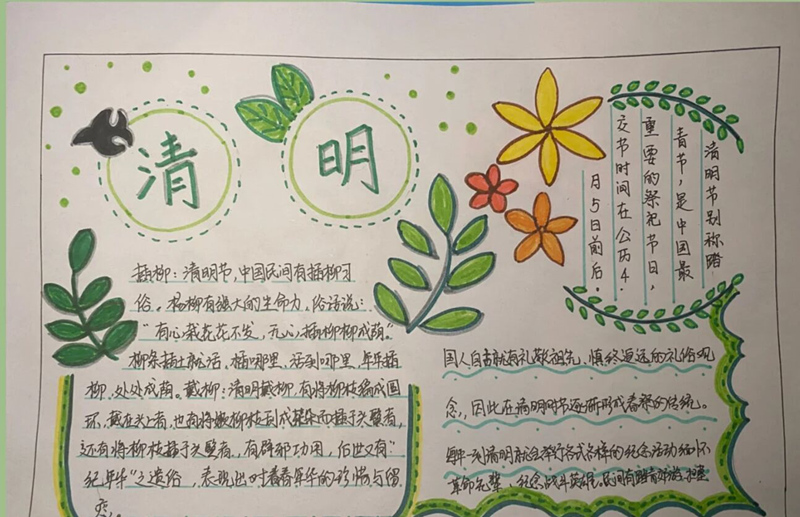 清 明
清明节别称踏
青节,是中国最
重要的祭祀节日,
交节时间在公历4.
月5日前后。
插柳:清明节,中国民间有插柳习
俗。杨柳有强大的生命力,俗话说:
"有心栽花花不发,无心插柳柳成荫。"
柳条插土就活,插哪里,活到哪里,年年插
柳,处处成荫。戴柳:清明戴柳,有将柳枝编成圆
环,戴在头上者,也有将嫩柳枝
还有将柳枝插于头髻者,有辟邪功用,
纪年华"之遗俗,表现出对青春年华的珍惜与留
恋。
国人自古就有礼敬祖先、慎终追远的礼俗观
念,因此在清明时节逐渐形成春祭的传统。
每年一到清明就会举行各式各样的纪念活动缅怀
革命先辈,纪念战斗英雄,民间有踏青郊游